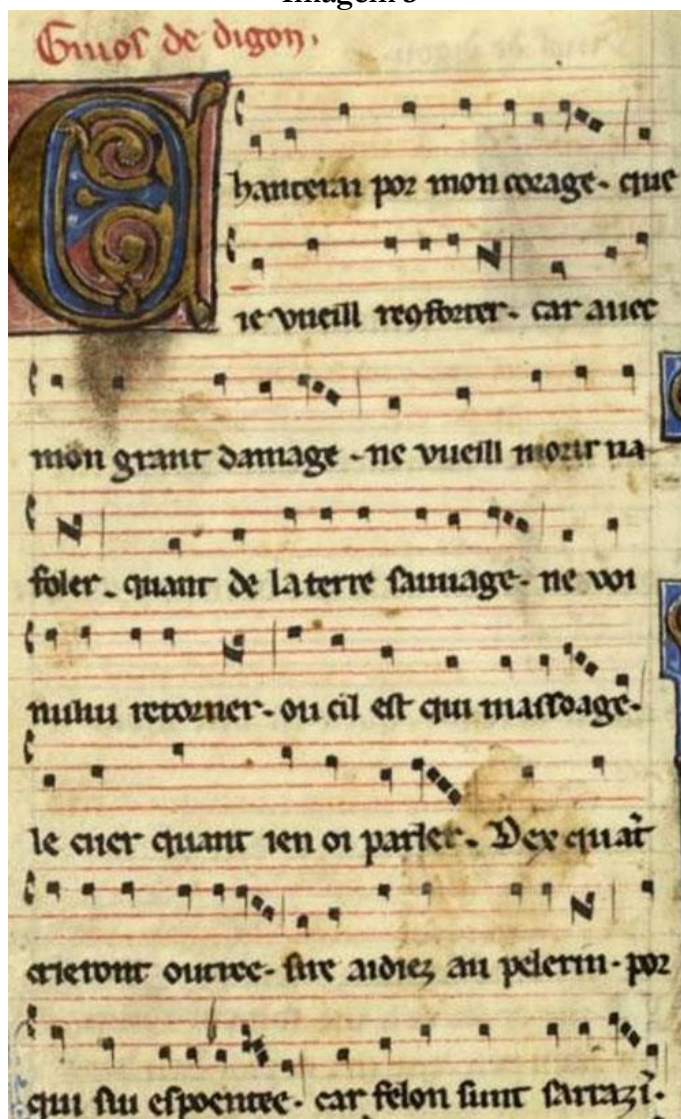 Imagem 8
Guios de digon.
Chanterai por mon corage. que
ie vueill reconforter. car auec
mon grant damage. ne vueill morir na
foler. quant de la terre sauuage. ne voi
nului retorner. ou cil est qui massoage.
le cuer quant ien oi parler. Dex quãt
crieront outree. sire aidiez au pelerin. por
qui sui espoentee. car felon sunt sarrazĩ.